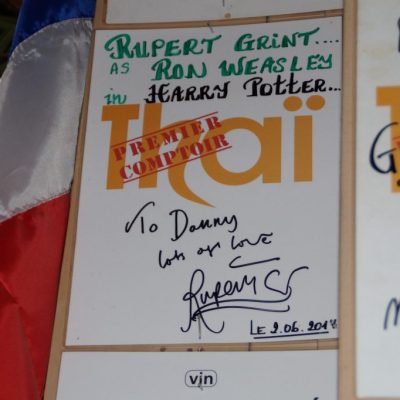 RUPERT GRINT....
AS RON WEASLEY
in HARRY POTTER...
Thaï
PREMIER
COMPTOIR
To Danny
lots of love
Rupert G
LE 2.06.2017
vin